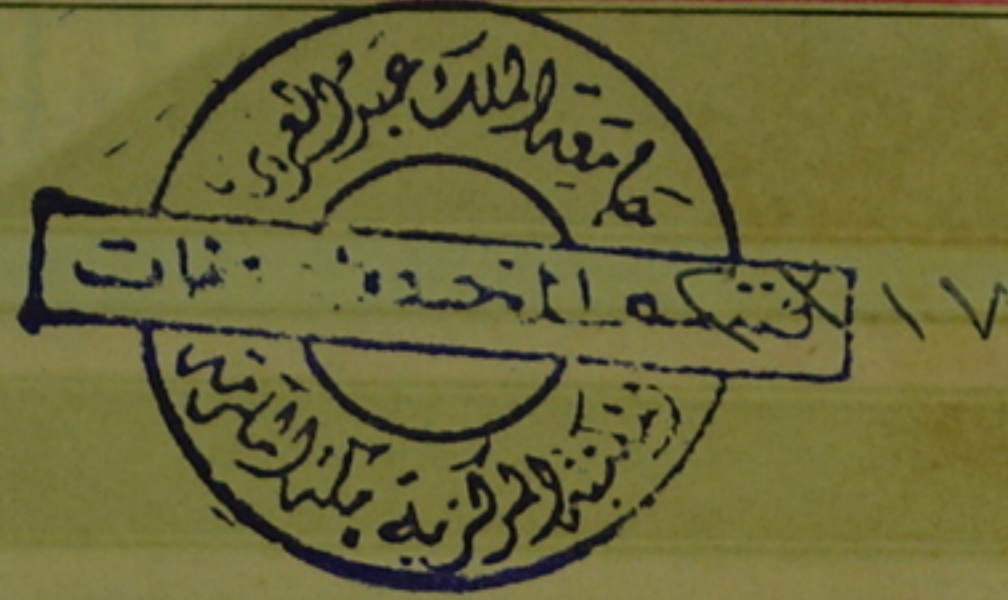 جامعة الملك عبد العزيز
المخطوطات
١٧
المكتبة المركزية بمكة المكرمة